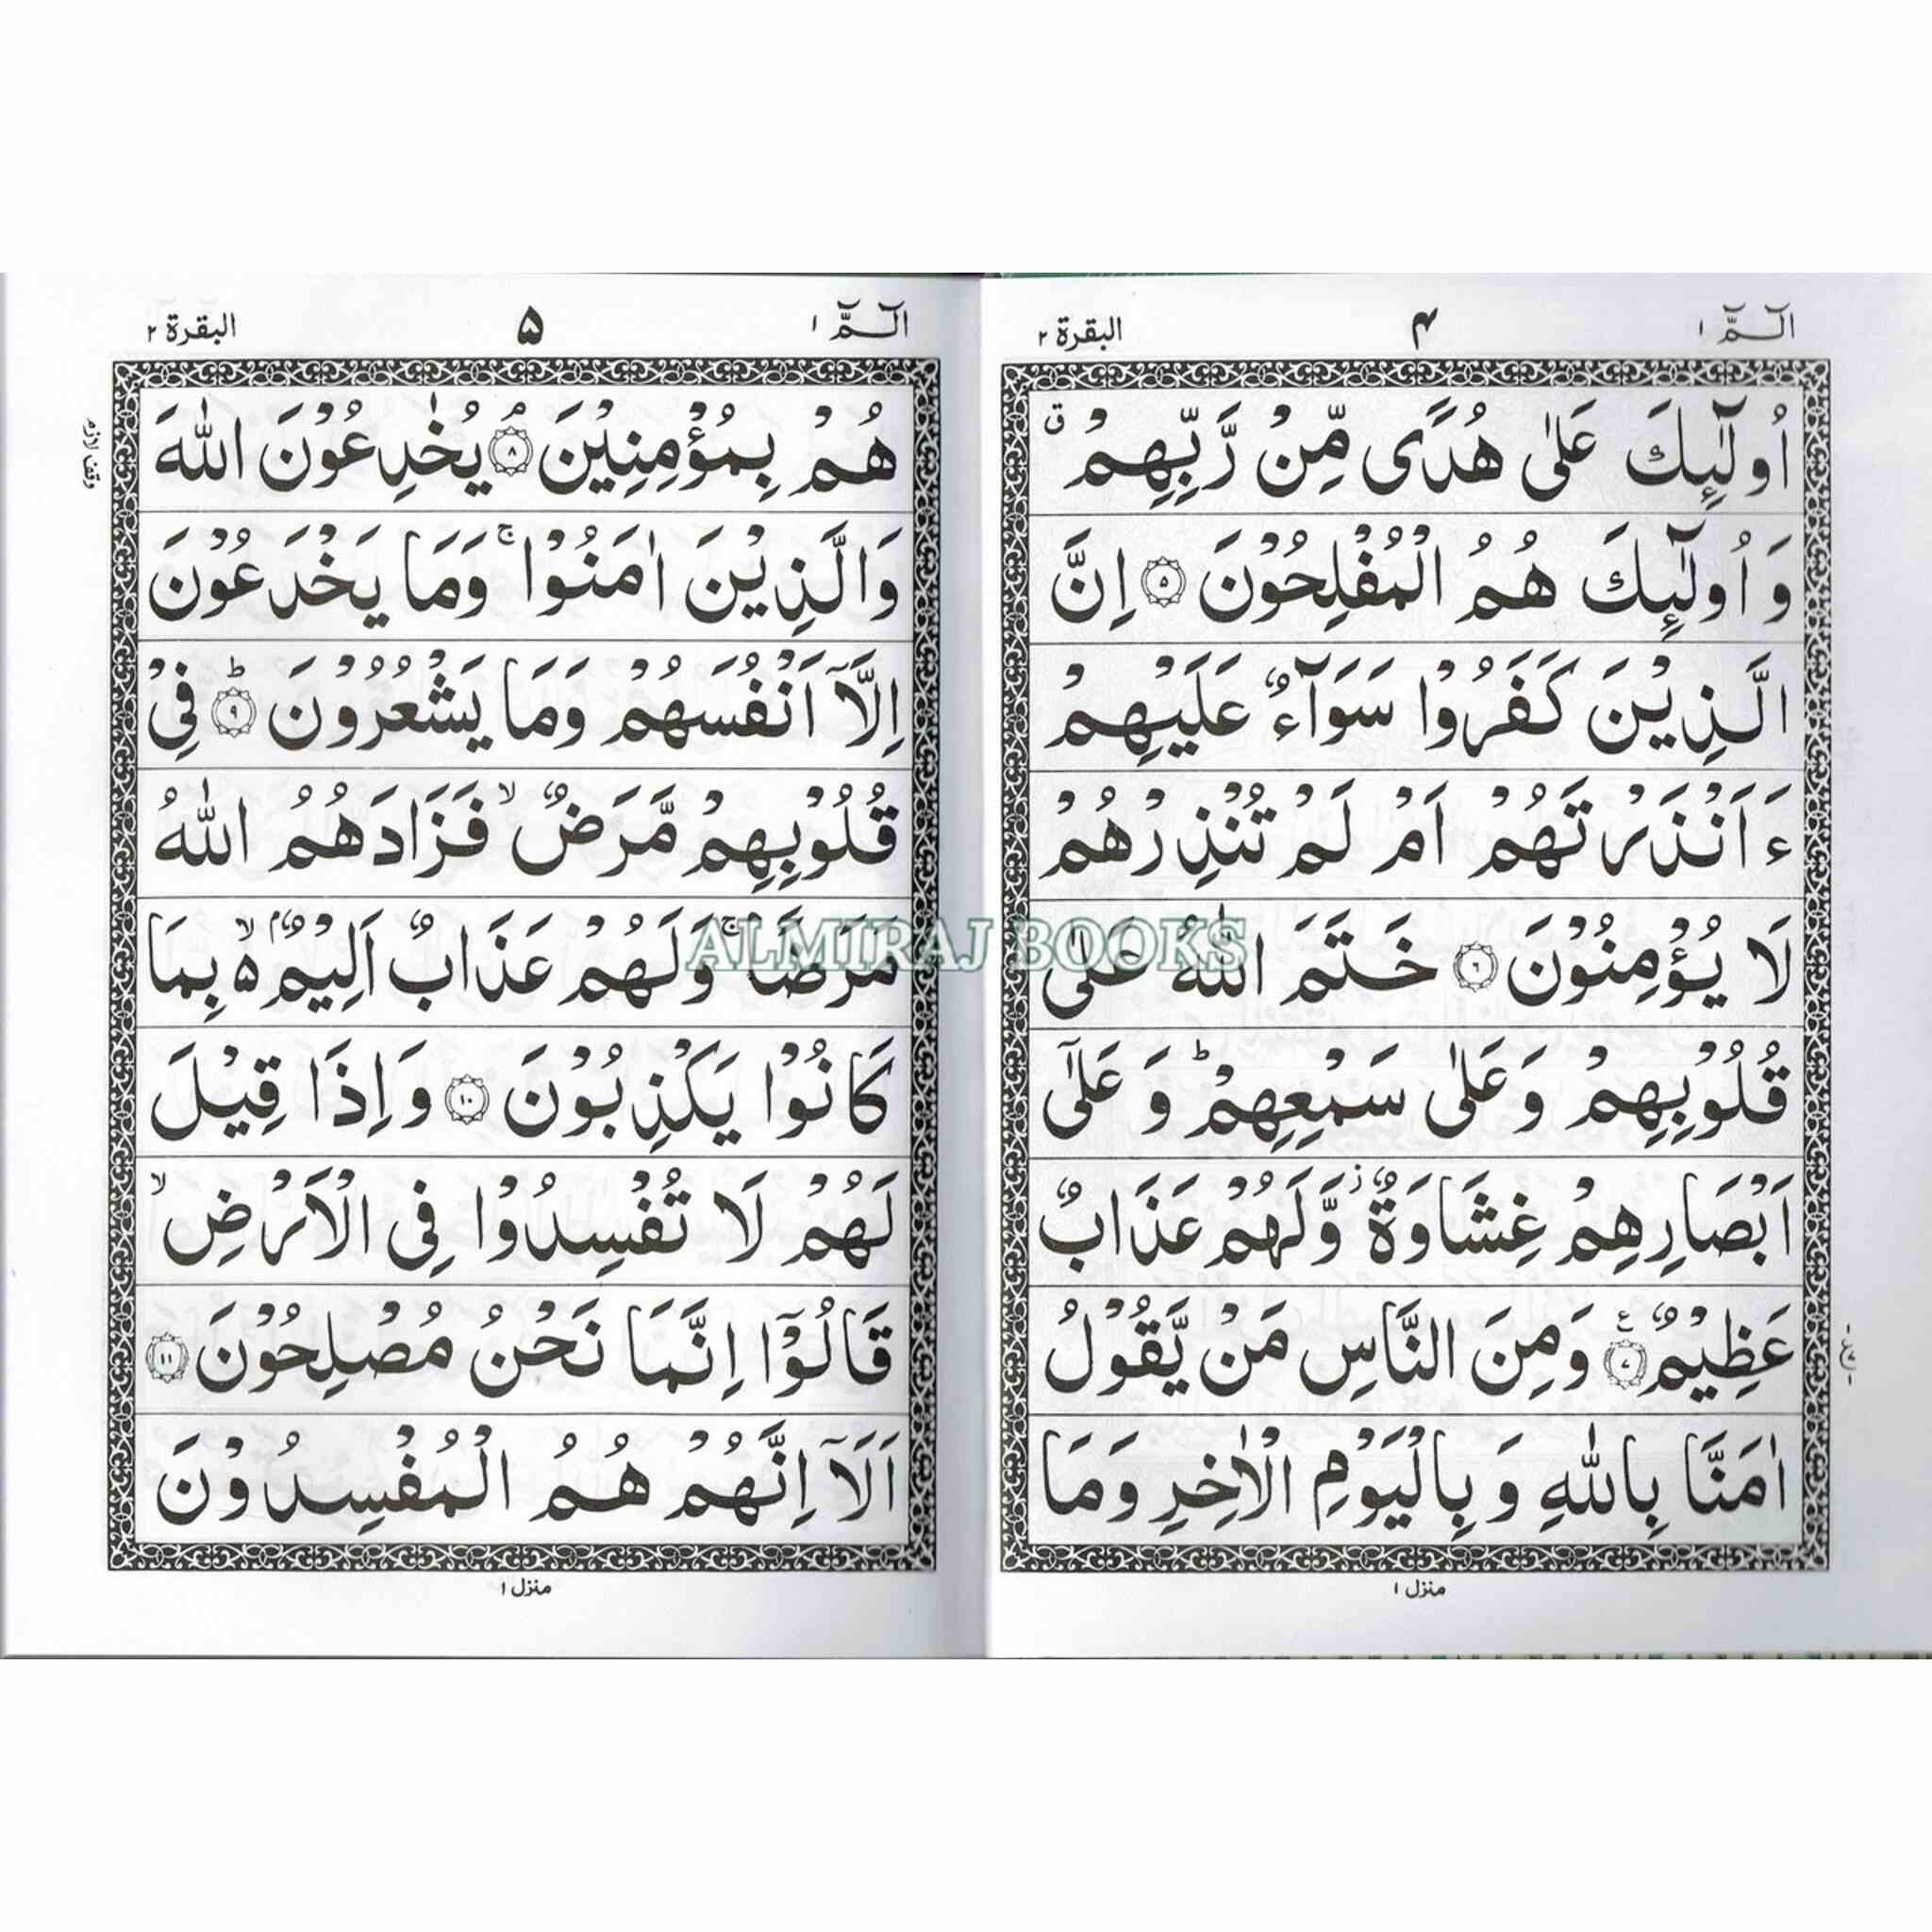 الٓمّٓ ١
۴
البقرة ٢
اُولٰٓئِكَ عَلٰى هُدًى مِّنْ رَّبِّهِمْ ۗ
وَ اُولٰٓئِكَ هُمُ الْمُفْلِحُوْنَ ۝٥ اِنَّ
الَّذِيْنَ كَفَرُوْا سَوَآءٌ عَلَيْهِمْ
ءَاَنْذَرْتَهُمْ اَمْ لَمْ تُنْذِرْهُمْ
لَا يُؤْمِنُوْنَ ۝٦ خَتَمَ اللّٰهُ عَلٰى
قُلُوْبِهِمْ وَ عَلٰى سَمْعِهِمْ ؕ وَ عَلٰٓى
اَبْصَارِهِمْ غِشَاوَةٌ ز وَّلَهُمْ عَذَابٌ
عَظِيْمٌ ۝٧ ع وَمِنَ النَّاسِ مَنْ يَّقُوْلُ
اٰمَنَّا بِاللّٰهِ وَ بِالْيَوْمِ الْاٰخِرِ وَمَا
منزل ١
الٓمّٓ ١
۵
البقرة ٢
وقف لازم
هُمْ بِمُؤْمِنِيْنَ ۝٨ ۘ يُخٰدِعُوْنَ اللّٰهَ
وَالَّذِيْنَ اٰمَنُوْا ۚ وَمَا يَخْدَعُوْنَ
اِلَّآ اَنْفُسَهُمْ وَمَا يَشْعُرُوْنَ ۝٩ ؕ فِيْ
قُلُوْبِهِمْ مَّرَضٌ ۙ فَزَادَهُمُ اللّٰهُ
مَرَضًا ۚ وَلَهُمْ عَذَابٌ اَلِيْمٌۢ ۵ ۙ بِمَا
كَانُوْا يَكْذِبُوْنَ ۝١٠ وَاِذَا قِيْلَ
لَهُمْ لَا تُفْسِدُوْا فِى الْاَرْضِ ۙ
قَالُوْٓا اِنَّمَا نَحْنُ مُصْلِحُوْنَ ۝١١
اَلَآ اِنَّهُمْ هُمُ الْمُفْسِدُوْنَ
منزل ١
ALMIRAJ BOOKS